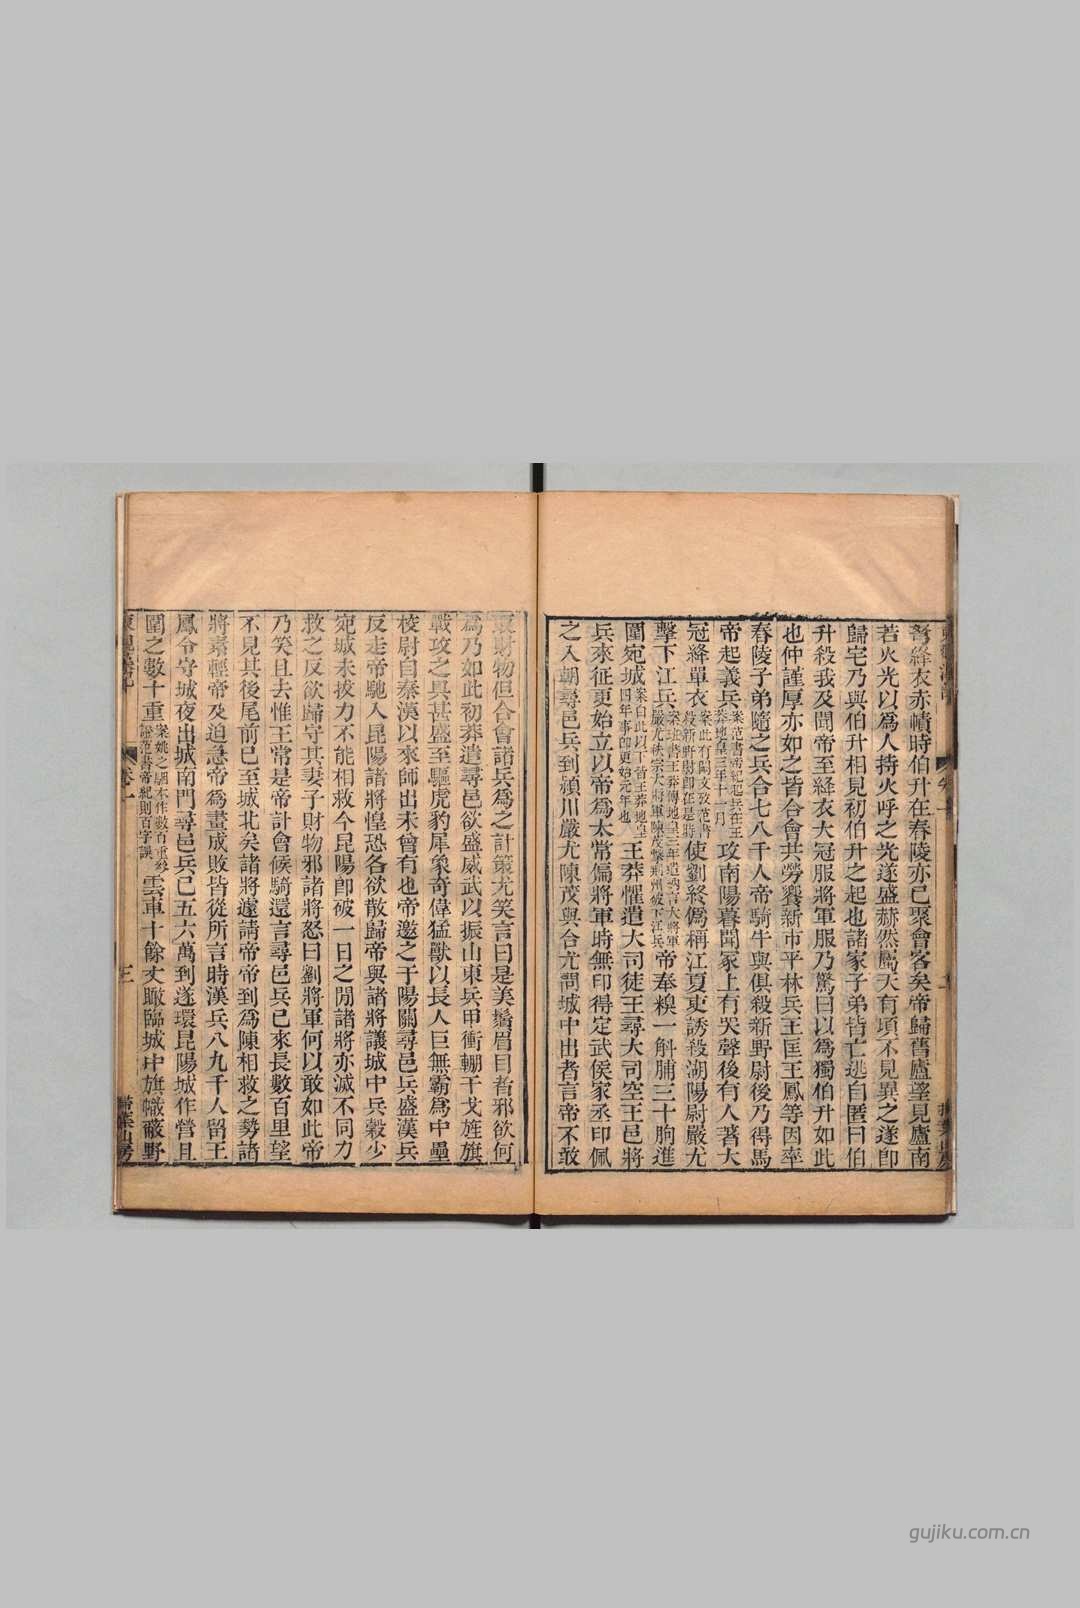 弩絳衣赤幘時伯升在舂陵亦已聚會客矣帝歸舊廬望見廬南
若火光以爲人持火呼之光遂盛赫然屬天有頃不見異之遂即
歸宅乃與伯升相見初伯升之起也諸家子弟皆亡逃自匿曰伯
升殺我及聞帝至絳衣大冠服將軍服乃驚曰以爲獨伯升如此
也仲謹厚亦如之皆合會共勞饗新市平林兵王匡王鳳等因率
舂陵子弟隨之兵合七八千人帝騎牛與俱殺新野尉後乃得馬
帝起義兵案范書帝紀起兵在王莽地皇三年十一月攻南陽暮聞冢上有哭聲後有人著大
冠絳單衣案此有闕文攷范書殺新野尉即在是時使劉終僞稱江夏吏誘殺湖陽尉嚴尤
擊下江兵案班書王莽傳地皇三年遣納言大將軍嚴尤秩宗大將軍陳茂擊荊州破下江兵帝奉糗一斛脯三十朐進
圍宛城案自此以下皆王莽地皇四年事即更始元年也王莽懼遣大司徒王尋大司空王邑將
兵來征更始立以帝爲太常偏將軍時無印得定武侯家丞印佩
之入朝尋邑兵到潁川嚴尤陳茂與合尤問城中出者言帝不敢
取財物但合會諸兵爲之計策尤笑言曰是美鬚眉目者邪欲何
爲乃如此初莽遣尋邑欲盛威武以振山東兵甲衝輣干戈旌旗
戰攻之具甚盛至驅虎豹犀象奇偉猛獸以長人巨無霸爲中壘
校尉自秦漢以來師出未曾有也帝邀之于陽關尋邑兵盛漢兵
反走帝馳入昆陽諸將惶恐各欲散歸帝與諸將議城中兵穀少
宛城未拔力不能相救今昆陽即破一日之閒諸將亦滅不同力
救之反欲歸守其妻子財物邪諸將怒曰劉將軍何以敢如此帝
乃笑且去惟王常是帝計會候騎還言尋邑兵已來長數百里望
不見其後尾前已至城北矣諸將遽請帝帝到爲陳相救之勢諸
將素輕帝及迫急帝爲畫成敗皆從所言時漢兵八九千人留王
鳳令守城夜出城南門尋邑兵已五六萬到遂環昆陽城作營且
圍之數十重案姚之駰本作數百重參證范書帝紀則百字誤雲車十餘丈瞰臨城中旗幟蔽野
東觀漢記
卷一
三
掃葉山房
gujiku.com.cn